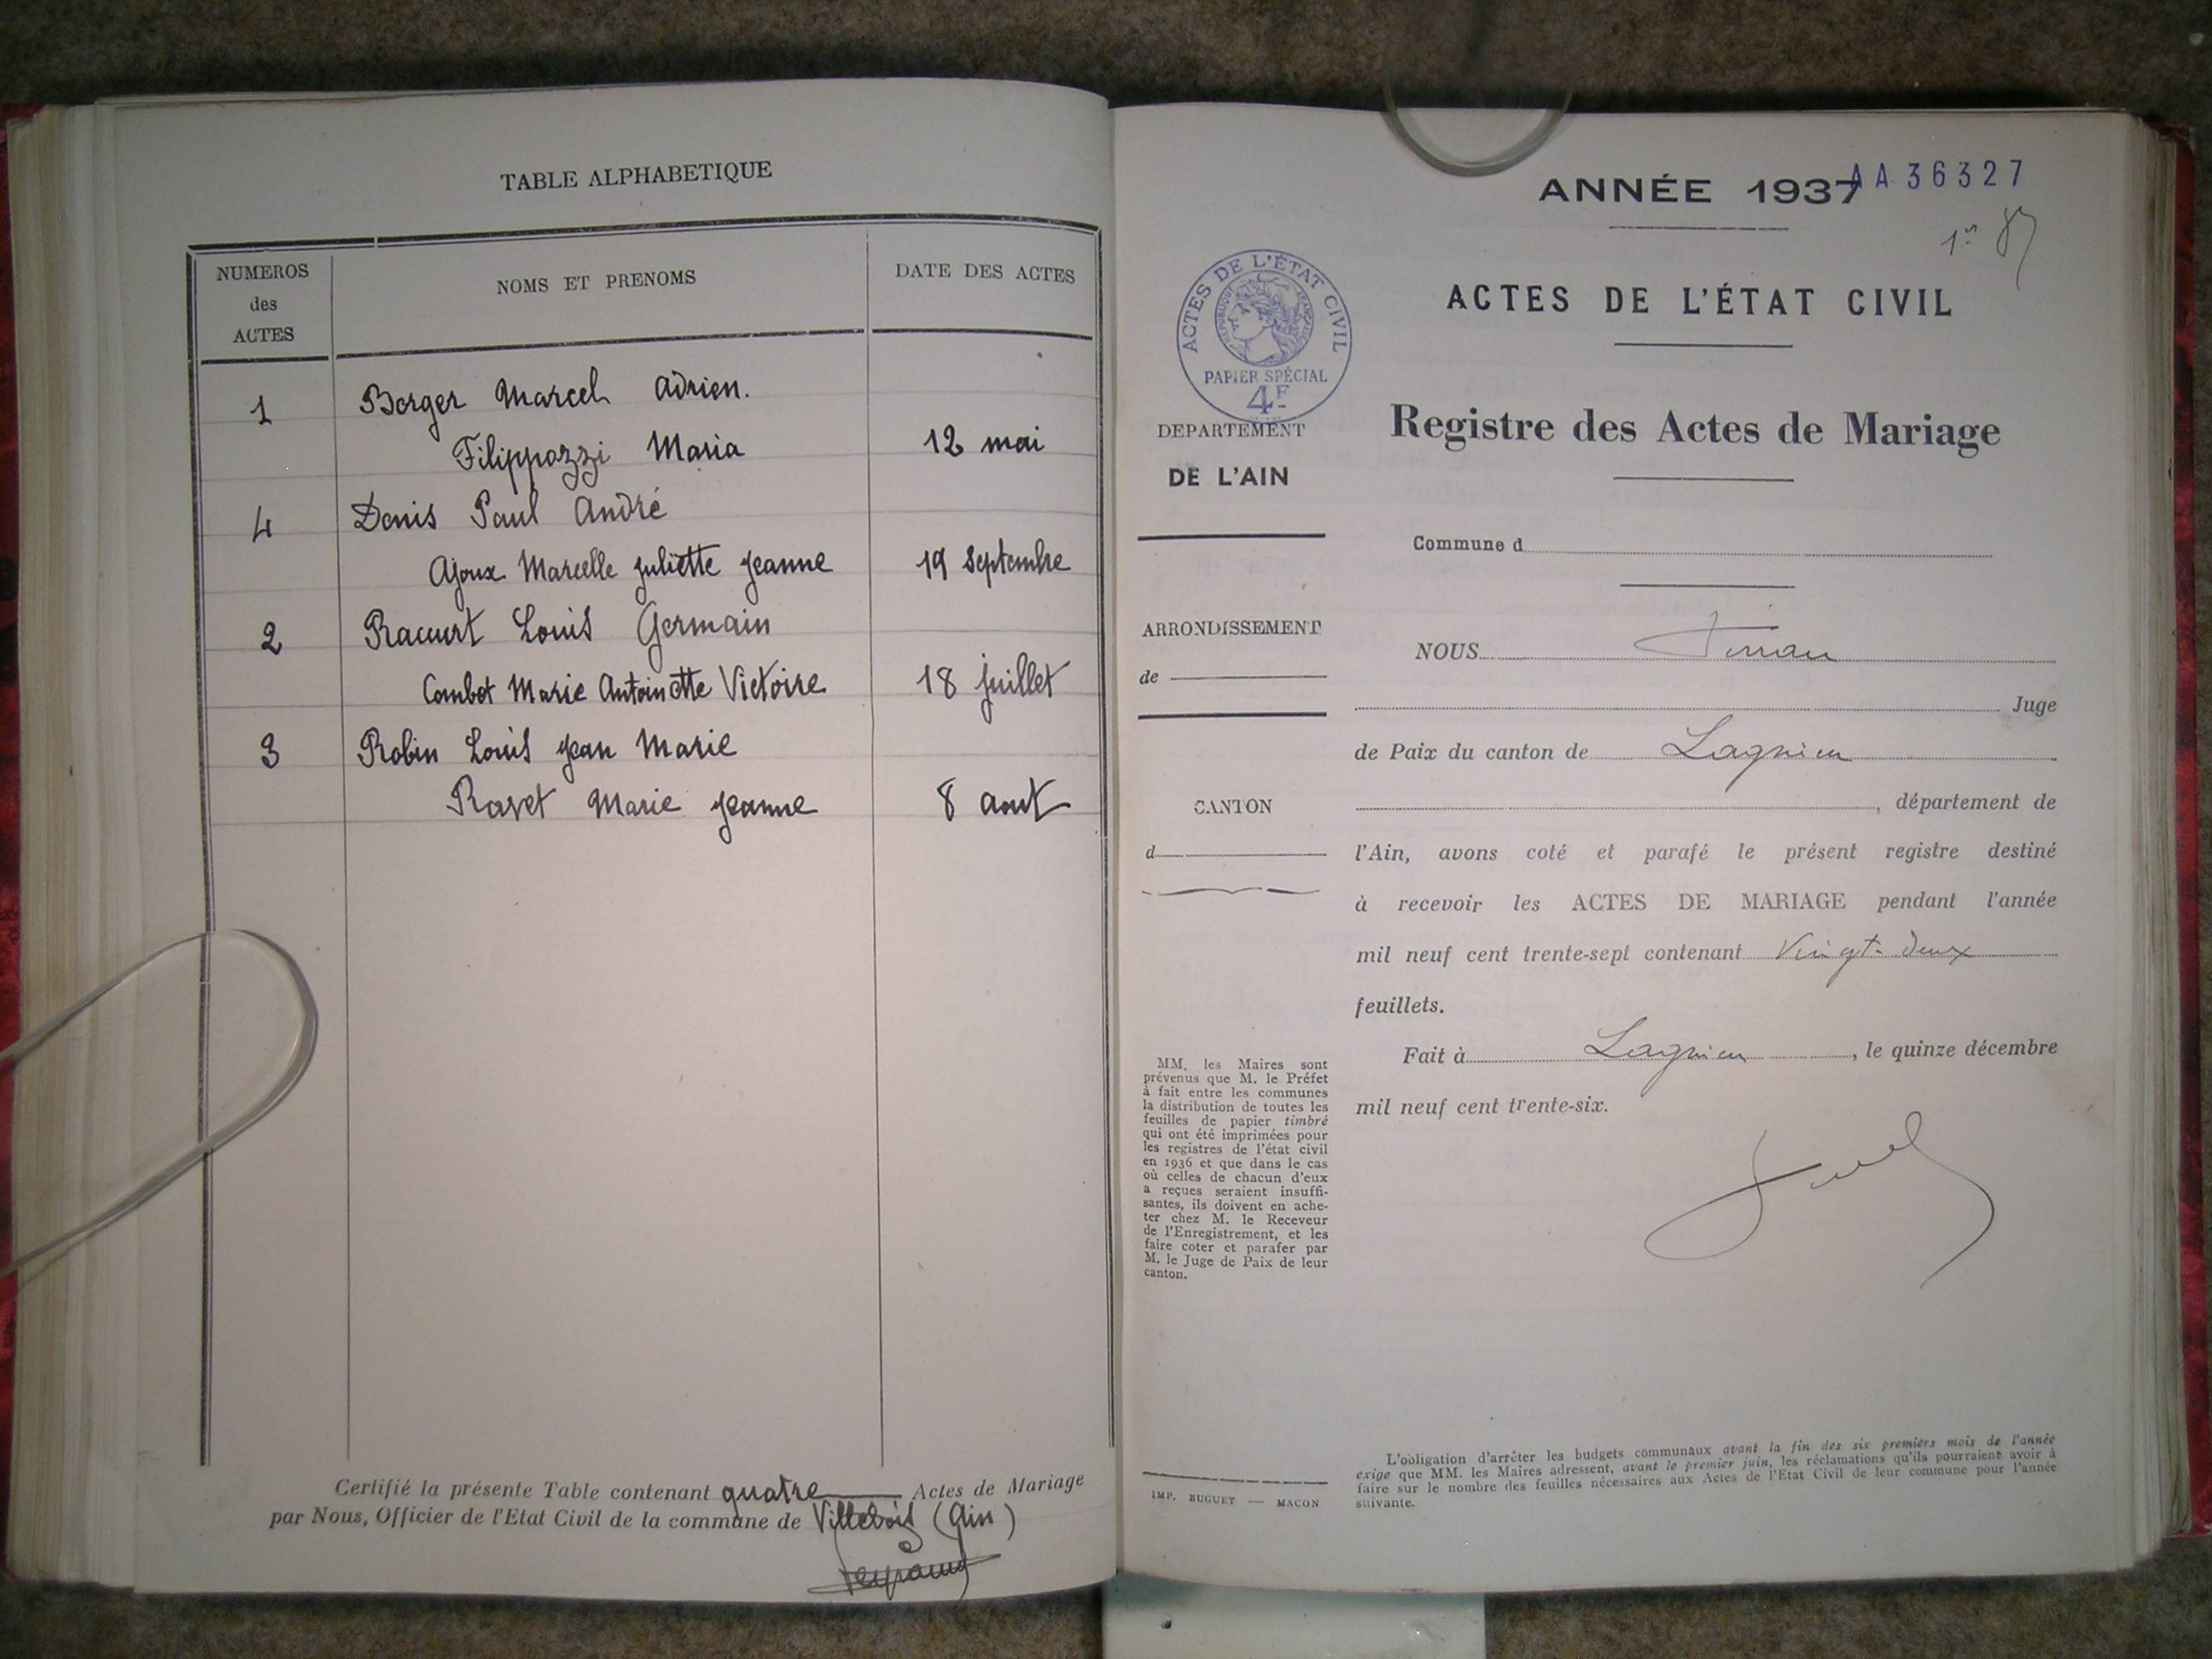 TABLE ALPHABETIQUE
NUMEROS
des
ACTES
NOMS ET PRENOMS
DATE DES ACTES
1 Berger Marcel Adrien.
Filippozzi Maria 12 mai
4 Denis Paul André
Ajoux Marcelle Juliette Jeanne 19 Septembre
2 Racurt Louis Germain
Combet Marie Antoinette Victoire 18 juillet
3 Robin Louis Jean Marie
Ravet Marie Jeanne 8 aout
Certifié la présente Table contenant quatre Actes de Mariage
par Nous, Officier de l'Etat Civil de la commune de Villebois (Ain)
ANNÉE 1937
AA 36327
ACTES DE L'ÉTAT CIVIL
RÉPUBLIQUE FRANÇAISE
PAPIER SPÉCIAL
4F
ACTES DE L'ÉTAT CIVIL
Registre des Actes de Mariage
DEPARTEMENT
DE L'AIN
ARRONDISSEMENT
de
CANTON
d
Commune d
NOUS
Juge
de Paix du canton de Lagnieu
, département de
l'Ain, avons coté et parafé le présent registre destiné
à recevoir les ACTES DE MARIAGE pendant l'année
mil neuf cent trente-sept contenant Vingt-deux
feuillets.
Fait à Lagnieu, le quinze décembre
mil neuf cent trente-six.
MM. les Maires sont
prévenus que M. le Préfet
à fait entre les communes
la distribution de toutes les
feuilles de papier timbré
qui ont été imprimées pour
les registres de l'état civil
en 1936 et que dans le cas
où celles de chacun d'eux
a reçues seraient insuffi-
santes, ils doivent en ache-
ter chez M. le Receveur
de l'Enregistrement, et les
faire coter et parafer par
M. le Juge de Paix de leur
canton.
IMP. BUGUET — MACON
L'obligation d'arrêter les budgets communaux avant la fin des six premiers mois de l'année
exige que MM. les Maires adressent, avant le premier juin, les réclamations qu'ils pourraient avoir à
faire sur le nombre des feuilles nécessaires aux Actes de l'Etat Civil de leur commune pour l'année
suivante.